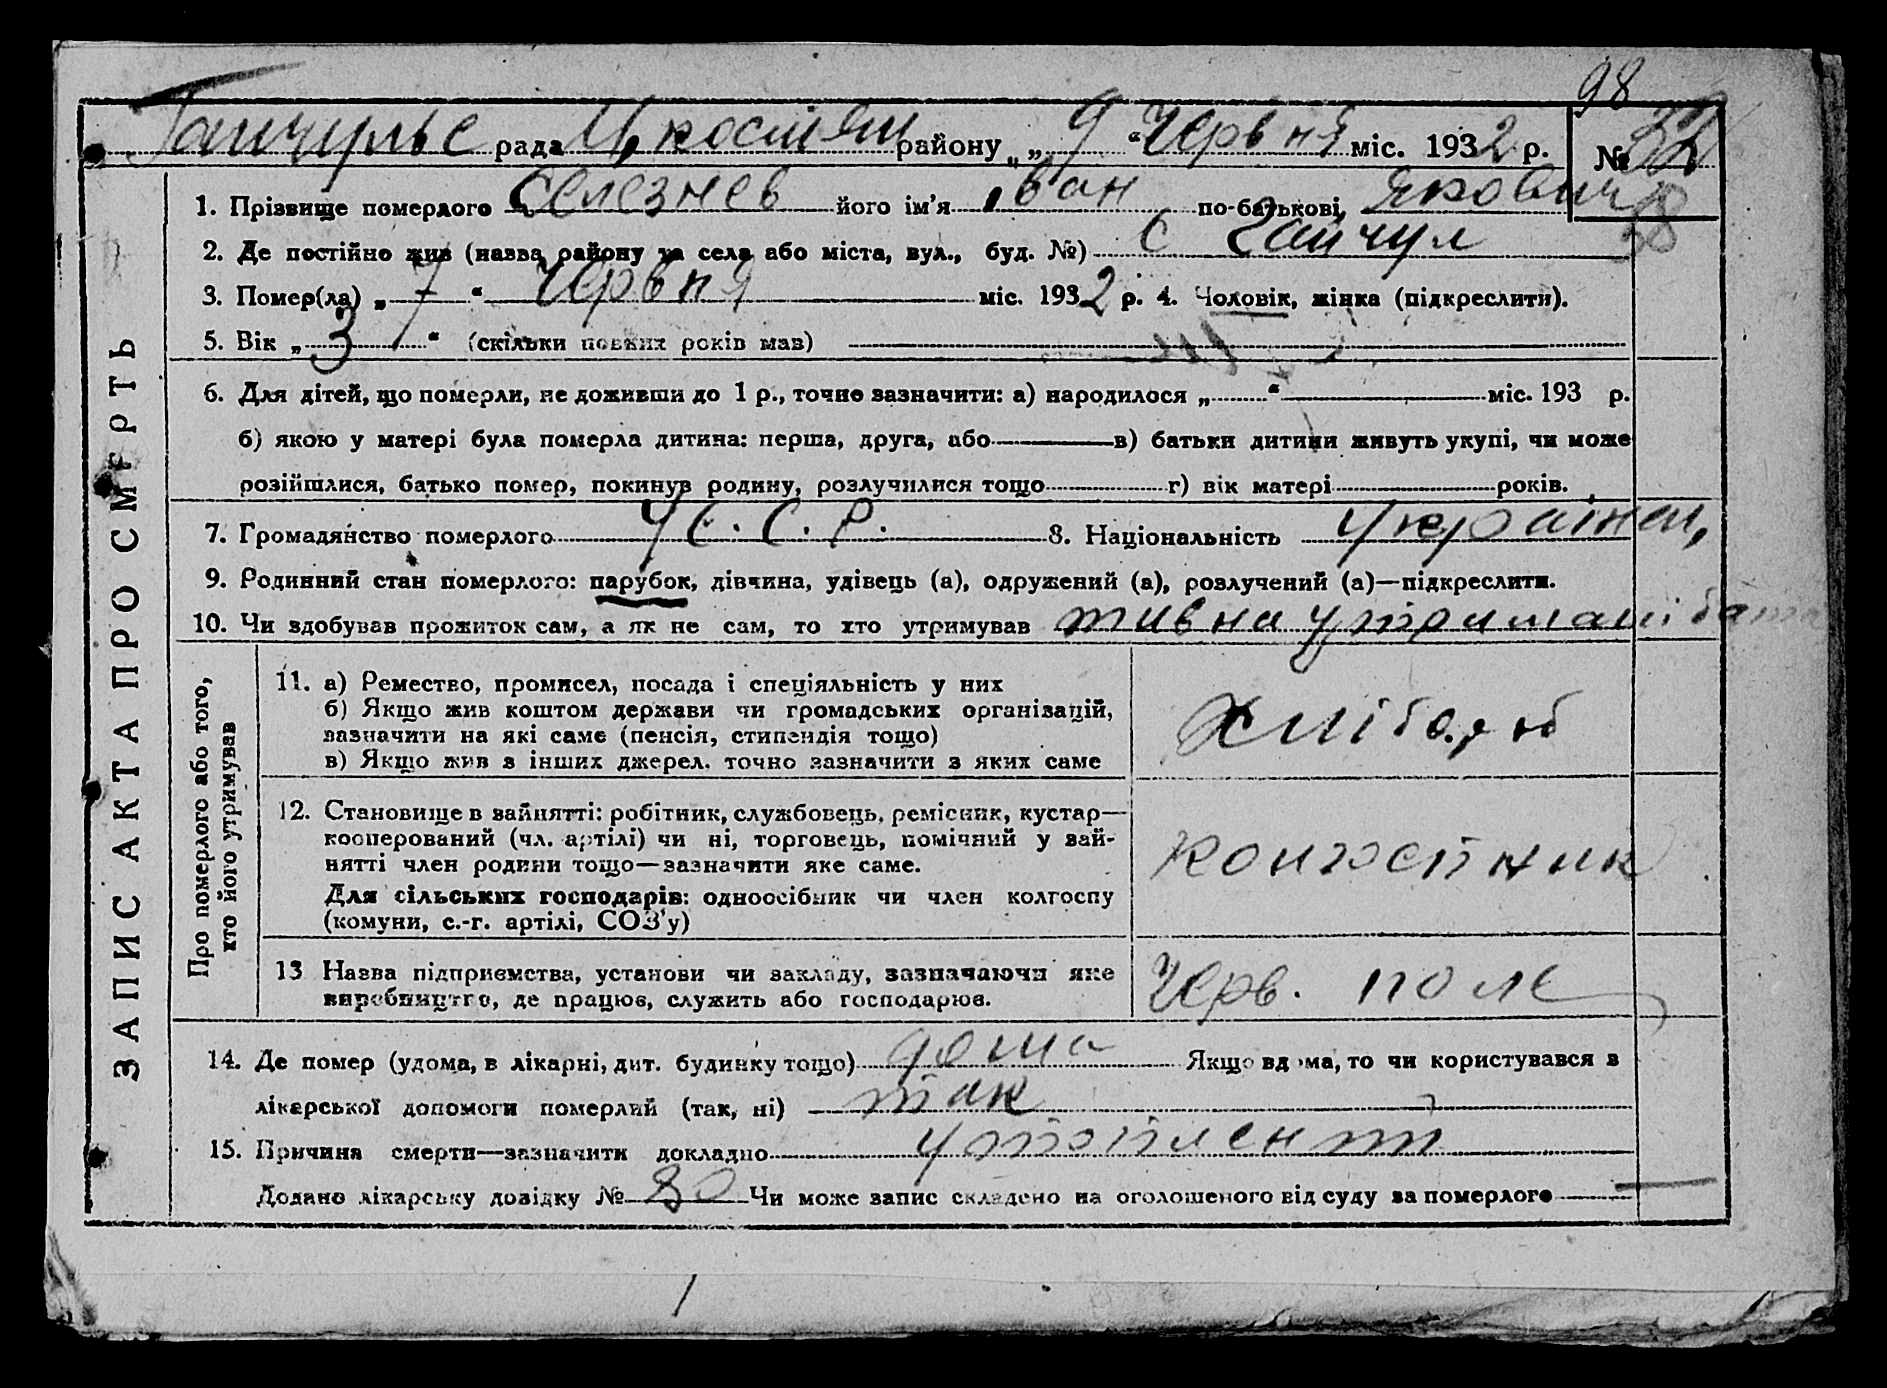 98
Гайчульс рада Ц, костян району „ „ 9 “ Червня міс. 1932 р. № 32
1. Прізвище померлого Селезнев його ім'я Іван по-батькові Якович 38
2. Де постійно жив (назва району та села або міста, вул., буд. №) С Гайчул
3. Помер(ла) „ 7 “ Червня міс. 1932 р. 4. Чоловік, жінка (підкреслити).
5. Вік „ 3 “ (скільки повних років мав)
6. Для дітей, що померли, не доживши до 1 р., точно зазначити: а) народилося „ “ міс. 193 р.
б) якою у матері була померла дитина: перша, друга, або в) батьки дитини живуть укупі, чи може
розійшлися, батько помер, покинув родину, розлучилися тощо г) вік матері років.
7. Громадянство померлого У.С.С.Р. 8. Національність Українец,
9. Родинний стан померлого: парубок, дівчина, удівець (а), одружений (а), розлучений (а)—підкреслити.
10. Чи здобував прожиток сам, а як не сам, то хто утримував жив на утримані бать
ЗАПИС АКТА ПРО СМЕРТЬ
Про померлого або того,
хто його утримував
11. а) Ремество, промисел, посада і спеціяльність у них
б) Якщо жив коштом держави чи громадських організацій,
зазначити на які саме (пенсія, стипендія тощо)
в) Якщо жив з інших джерел, точно зазначити з яких саме
Хлібороб
12. Становище в зайнятті: робітник, службовець, ремісник, кустар—
кооперований (чл. артілі) чи ні, торговець, помічний у зай-
нятті член родини тощо—зазначити яке саме.
Для сільських господарів: одноосібник чи член колгоспу
(комуни, с.-г. артілі, СОЗ'у)
Колгоспник
13 Назва підприємства, установи чи закладу, зазначаючи яке
виробництво, де працює, служить або господарює.
Черв. поле
14. Де помер (удома, в лікарні, дит. будинку тощо) дома Якщо вдома, то чи користувався в
лікарської допомоги померлий (так, ні) так
15. Причина смерти—зазначити докладно
Додано лікарську довідку № 80 Чи може запис складено на оголошеного від суду за померлого